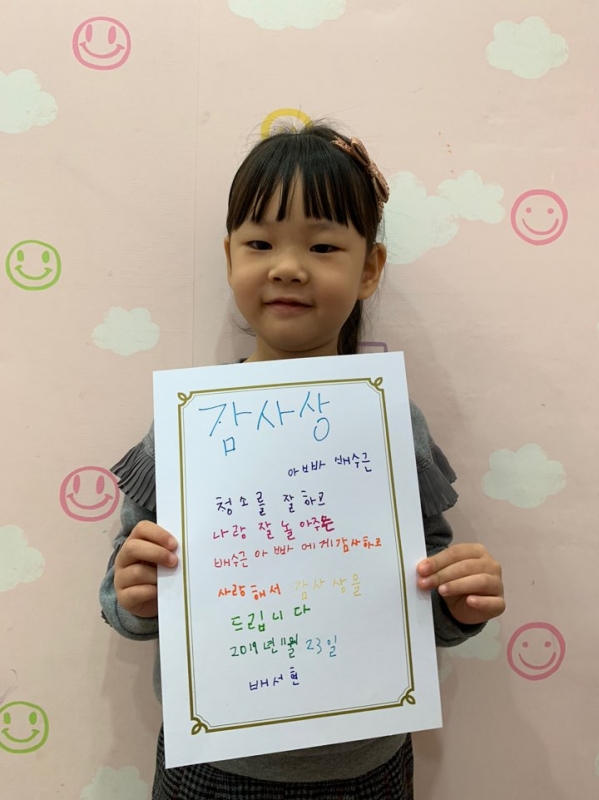 감사상
아빠 배수근
청소를 잘하고
나랑 잘 놀아주는
배수근 아빠에게 감사하고
사랑해서 감사상을
드립니다
2019년 11월 23일
배서현